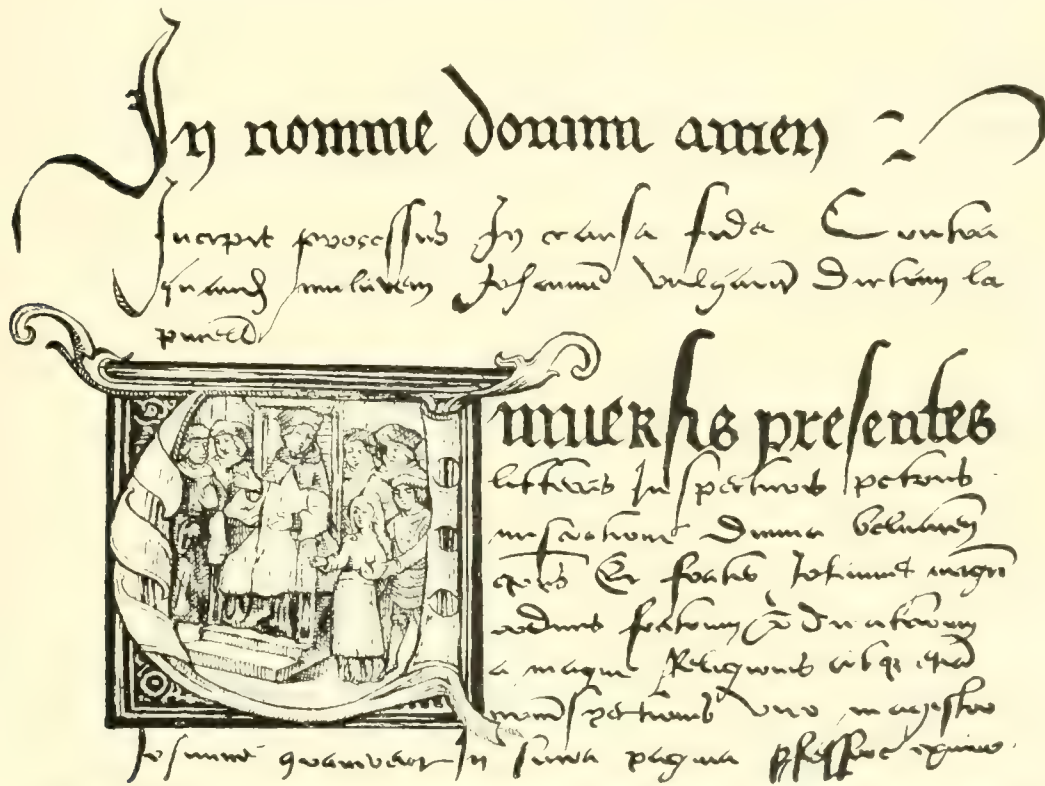 In nomine domini amen
Incipit processus In causa fidei Contra
quand mulierem Johannam vulgarit dictam la
pucell
Universis presentes
litteras Inspecturis petrus
miseratione divina belvacen
epus Et frater Johannes magri
ordinis fratrum
religionis
viro magistro
Johanne In sacra pagina pfessore eximio